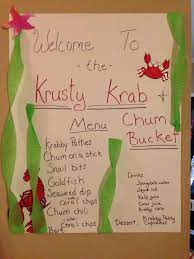 Welcome To
- the -
Krusty Krab +
Chum
Bucket
Menu
Krabby Patties
Chum on a stick
Snail bits
Goldfish
Seaweed dip
with
Coral chips
Chum chili
and
Coral chips
Drinks:
Kelp juice
Coral juice
Dessert:
Krabby Patty
Cupcakes